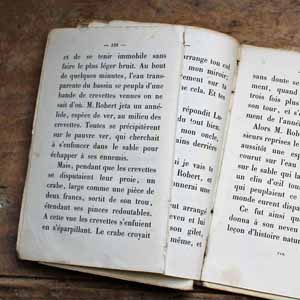 et de se tenir immobile sans
faire le plus léger bruit. Au bout
de quelques minutes, l'eau trans-
parente du bassin se peupla d'une
bande de crevettes venues on ne
sait d'où. M. Robert jeta un anné-
lide, espèce de ver, au milieu des
crevettes. Toutes se précipitèrent
sur le pauvre ver, qui cherchait
à s'enfoncer dans le sable pour
échapper à ses ennemis.
Mais, pendant que les crevettes
se disputaient leur proie, un
crabe, large comme une pièce de
deux francs, sortit de son trou,
étendant ses pinces redoutables.
A cette vue les crevettes s'enfuient
en s'éparpillant. Le crabe croyait
arrange ton col
mon miroir;
te cela. Et tes
répondit Lu-
bien.
mon oncle,
ains derrière
je vais te
Robert, et
nnerai une
ut arrangé
son gilet,
même, et
sans doute se
plus fois
son tour, et s'
ment de l'anné
Alors M. Rober
sieurs reprises
aussitôt une es
courut sur l'eau
sur le sable qui la
en un clin d'œil
qui peuplaient ce
monde curieux
Ce fut ainsi qu
donna à son neveu
leçon d'histoire natur